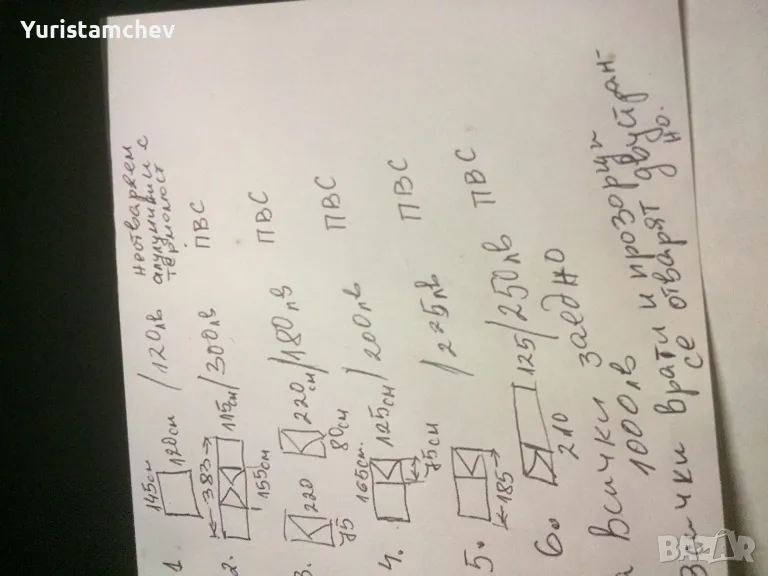 Yuristamchev
1. 145см 120см /120лв неотваряем алуминий с термомост
2. 383 115см/300лв ПВС
155см
3. 220 75 220см/180лв ПВС
80см
4. 165см. 125см/200лв ПВС
75см
5. 185 /225лв ПВС
6. 210 125/250лв ПВС
Всички заедно
1000лв
Всички врати и прозорци
се отварят двуйран-
но.
BAZAR